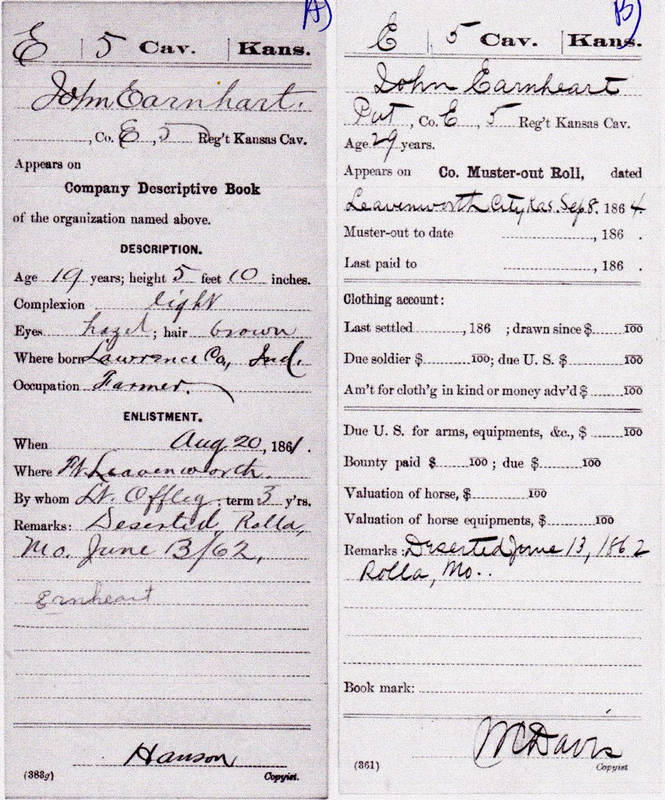 A)
E | 5 Cav. | Kans.
John Earnhart.
, Co. E, 5 Reg't Kansas Cav.
Appears on
Company Descriptive Book
of the organization named above.
DESCRIPTION.
Age 19 years; height 5 feet 10 inches.
Complexion light
Eyes hazel; hair brown
Where born Lawrence Co, Ind.
Occupation Farmer.
ENLISTMENT.
When Aug 20, 1861.
Where Ft. Leavenworth.
By whom Lt. Offley; term 3 y'rs.
Remarks: Deserted, Rolla,
Mo. June 13/62.
Ernheart
Hanson
(383g) Copyist.
B)
E | 5 Cav. | Kans.
John Earnheart
Pvt, Co. E 5 Reg't Kansas Cav.
Age 29 years.
Appears on Co. Muster-out Roll, dated
Leavenworth City Kas. Sep. 8. 1864.
Muster-out to date , 186 .
Last paid to , 186 .
Clothing account:
Last settled , 186 ; drawn since $ 100
Due soldier $ 100; due U. S. $ 100
Am't for cloth'g in kind or money adv'd $ 100
Due U. S. for arms, equipments, &c., $ 100
Bounty paid $ 100; due $ 100
Valuation of horse, $ 100
Valuation of horse equipments, $ 100
Remarks: Deserted June 13, 1862
Rolla, Mo..
Book mark:
M C Davis
(361) Copyist